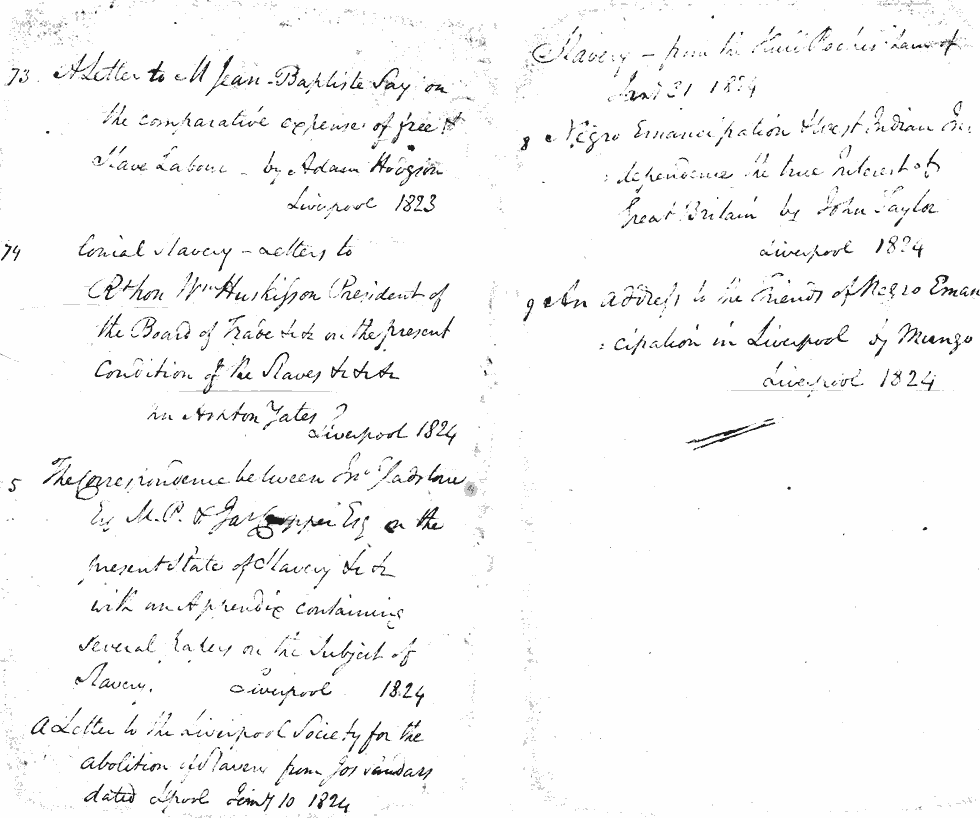 73 A Letter to M Jean-Baptiste Say on
the comparative expense of free &
Slave Labour - by Adam Hodgson
Liverpool 1823
74 Conial Slavery - Letters to
Rt hon Wm Huskisson President of
the Board of Trade &c &c on the present
Condition of the Slaves &c &c &c
Ashton Yates
Liverpool 1824
5 The Correspondence between Jno Gladstone
Esq M.P. & Jas Cropper Esq on the
present State of Slavery &c &c
with an Appendix containing
several Papers on the Subject of
Slavery. Liverpool 1824
A Letter to the Liverpool Society for the
abolition of Slavery from Jos Sandars
dated Lpool Jany 10 1824
Slavery - from the
Jany 31 1824
8 Negro Emancipation & West Indian In:
:dependence the true Interest of
Great Britain by John Taylor
Liverpool 1824
9 An address to the Friends of Negro Eman
:cipation in Liverpool by Mungo
Liverpool 1824